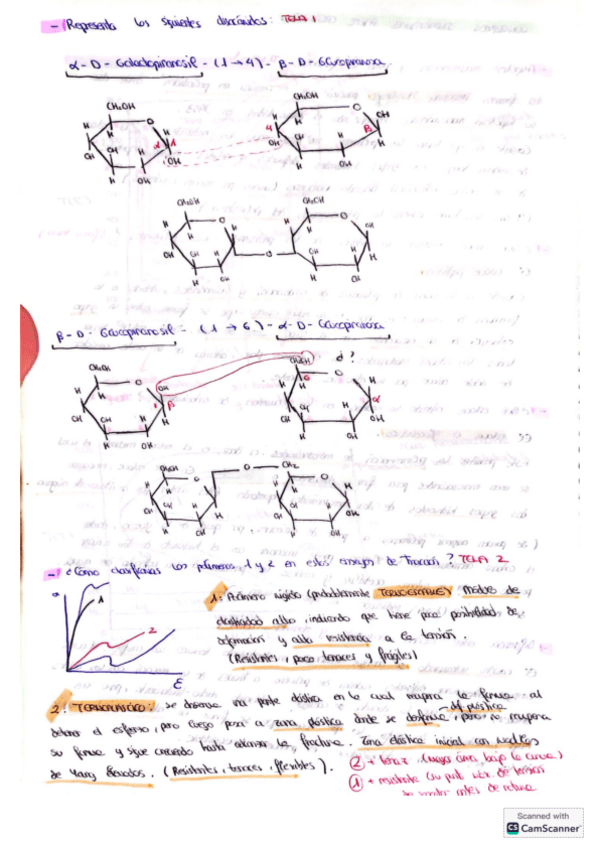 - Representa los siguientes disacáridos: TEMA 1
α-D-Galactopiranosil-(1→4)-β-D-Glucopiranosa.
CH2OH
CH2OH
H
O
H
H
O
OH
H
α
1
4
β
H
OH
H
OH
OH
OH
H
H
OH
H
OH
CH2OH
CH2OH
O
O
OH
H
OH
OH
O
H
H
OH
H
OH
β-D-Glucopiranosil-(1→6)-α-D-Glucopiranosa
d?
CH2OH
CH2OH
O
OH
6
O
H
H
1
β
H
α
OH
OH
H
OH
OH
OH
H
OH
H
OH
CH2OH
O
CH2
O
O
H
H
OH
OH
OH
OH
H
OH
H
OH
- ¿Cómo clasificarías los polímeros 1 y 2 en estos ensayos de Tracción? TEMA 2
σ
1
2
ε
1: Polímero rígido (probablemente TERMOESTABLE) Módulo de
elasticidad alto, indicando que tiene poca posibilidad de
deformación y alta resistencia a la tensión.
(Resistentes, poco tenaces y frágiles)
2: TERMOPLÁSTICO: se observa una parte elástica en la cual recupera la forma al
def plástica
detener el esfuerzo, pero luego pasa a zona plástica donde se deforma, pero no recupera
su forma y sigue creciendo hasta alcanzar la fractura. Zona elástica inicial con módulos
de Young elevados. (Resistentes, tenaces, flexibles).
② + tenaz (mayor área bajo la curva)
① + resistente (su punto máx. de tensión
antes de rotura
Scanned with
CS CamScanner